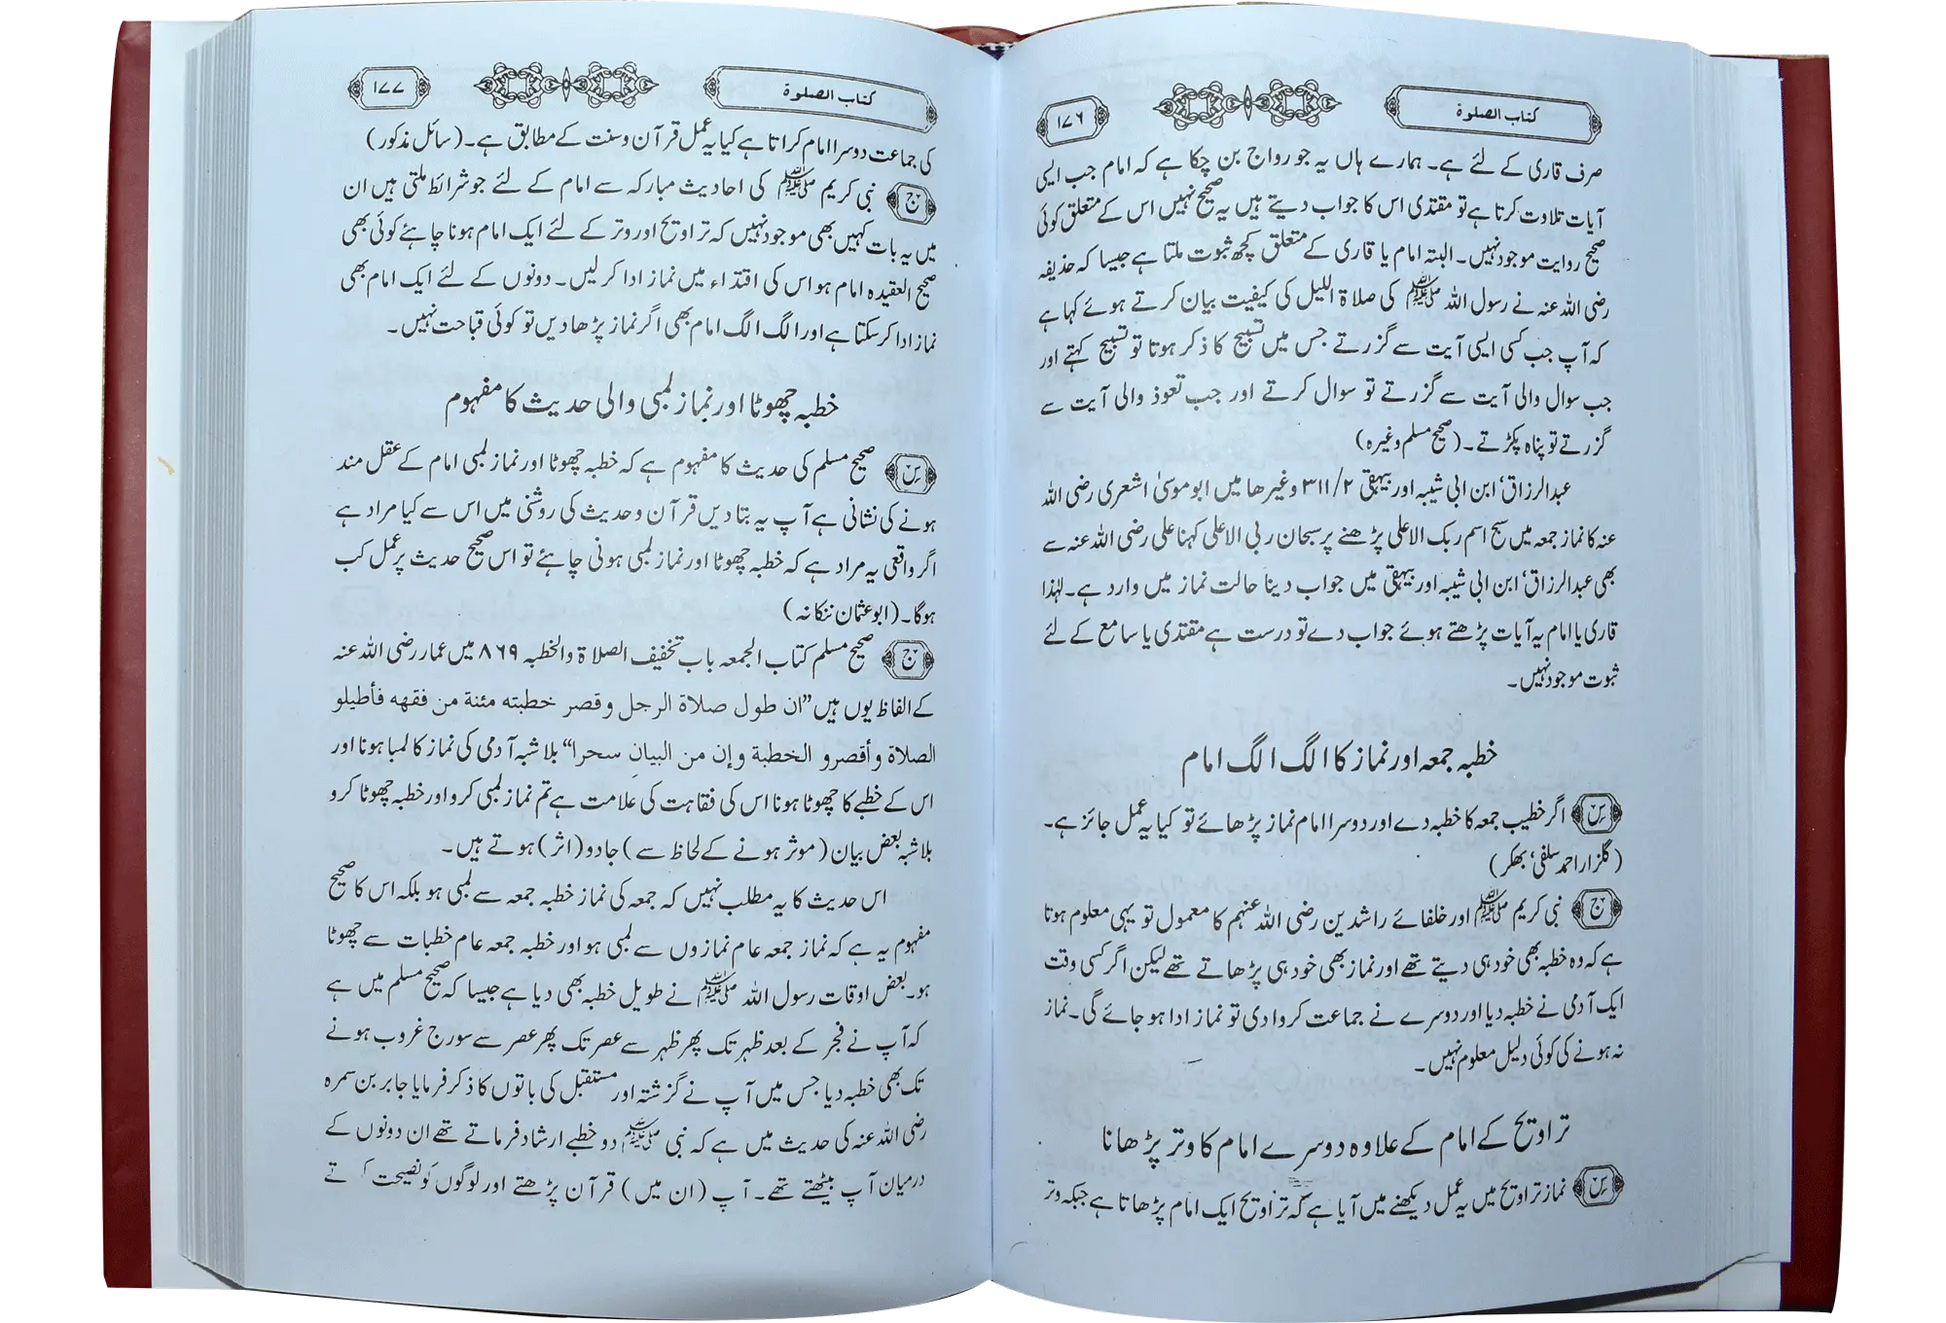 کتاب الصلوة
۱۷۶
صرف قاری کے لئے ہے۔ ہمارے ہاں یہ جو رواج بن چکا ہے کہ امام جب ایسی
آیات تلاوت کرتا ہے تو مقتدی اس کا جواب دیتے ہیں یہ صحیح نہیں اس کے متعلق کوئی
صحیح روایت موجود نہیں۔ البتہ امام یا قاری کے متعلق کچھ ثبوت ملتا ہے جیسا کہ حذیفہ
رضی اللہ عنہ نے رسول اللہ ﷺ کی صلاۃ اللیل کی کیفیت بیان کرتے ہوئے کہا ہے
کہ آپ جب کسی ایسی آیت سے گزرتے جس میں تسبیح کا ذکر ہوتا تو تسبیح کہتے اور
جب سوال والی آیت سے گزرتے تو سوال کرتے اور جب تعوذ والی آیت سے
گزرتے تو پناہ پکڑتے۔ (صحیح مسلم وغیرہ)
عبدالرزاق، ابن ابی شیبہ اور بیہقی ۳۱۱/۲ وغیرھا میں ابوموسیٰ اشعری رضی اللہ
عنہ کا نماز جمعہ میں سبح اسم ربک الاعلی پڑھنے پر سبحان ربی الاعلی کہنا علی رضی اللہ عنہ سے
بھی عبدالرزاق، ابن ابی شیبہ اور بیہقی میں جواب دینا حالت نماز میں وارد ہے۔ لہٰذا
قاری یا امام یہ آیات پڑھتے ہوئے جواب دے تو درست ہے مقتدی یا سامع کے لئے
ثبوت موجود نہیں۔
خطبہ جمعہ اور نماز کا الگ الگ امام
س اگر خطیب جمعہ کا خطبہ دے اور دوسرا امام نماز پڑھائے تو کیا یہ عمل جائز ہے۔
(گلزار احمد سلفی، بھکر)
ج نبی کریم ﷺ اور خلفائے راشدین رضی اللہ عنہم کا معمول تو یہی معلوم ہوتا
ہے کہ وہ خطبہ بھی خود ہی دیتے تھے اور نماز بھی خود ہی پڑھاتے تھے لیکن اگر کسی وقت
ایک آدمی نے خطبہ دیا اور دوسرے نے جماعت کروا دی تو نماز ادا ہو جائے گی۔ نماز
نہ ہونے کی کوئی دلیل معلوم نہیں۔
تراویح کے امام کے علاوہ دوسرے امام کا وتر پڑھانا
س نماز تراویح میں یہ عمل دیکھنے میں آیا ہے کہ تراویح ایک امام پڑھاتا ہے جبکہ وتر
کتاب الصلوة
۱۷۷
کی جماعت دوسرا امام کراتا ہے کیا یہ عمل قرآن وسنت کے مطابق ہے۔ (سائل مذکور)
ج نبی کریم ﷺ کی احادیث مبارکہ سے امام کے لئے جو شرائط ملتی ہیں ان
میں یہ بات کہیں بھی موجود نہیں کہ تراویح اور وتر کے لئے ایک امام ہونا چاہئے کوئی بھی
صحیح العقیدہ امام ہو اس کی اقتداء میں نماز ادا کر لیں۔ دونوں کے لئے ایک امام بھی
نماز ادا کر سکتا ہے اور الگ الگ امام بھی اگر نماز پڑھا دیں تو کوئی قباحت نہیں۔
خطبہ چھوٹا اور نماز لمبی والی حدیث کا مفہوم
س صحیح مسلم کی حدیث کا مفہوم ہے کہ خطبہ چھوٹا اور نماز لمبی امام کے عقل مند
ہونے کی نشانی ہے آپ یہ بتا دیں قرآن وحدیث کی روشنی میں اس سے کیا مراد ہے
اگر واقعی یہ مراد ہے کہ خطبہ چھوٹا اور نماز لمبی ہونی چاہئے تو اس صحیح حدیث پر عمل کب
ہوگا۔ (ابوعثمان ننکانہ)
ج صحیح مسلم کتاب الجمعہ باب تخفیف الصلاۃ والخطبہ ۸۶۹ میں عمار رضی اللہ عنہ
کے الفاظ یوں ہیں ”ان طول صلاة الرجل وقصر خطبته مئنة من فقهه فأطيلو
الصلاة وأقصرو الخطبة وإن من البيان سحرا“ بلاشبہ آدمی کی نماز کا لمبا ہونا اور
اس کے خطبے کا چھوٹا ہونا اس کی فقاہت کی علامت ہے تم نماز لمبی کرو اور خطبہ چھوٹا کرو
بلاشبہ بعض بیان (موثر ہونے کے لحاظ سے) جادو (اثر) ہوتے ہیں۔
اس حدیث کا یہ مطلب نہیں کہ جمعہ کی نماز خطبہ جمعہ سے لمبی ہو بلکہ اس کا صحیح
مفہوم یہ ہے کہ نماز جمعہ عام نمازوں سے لمبی ہو اور خطبہ جمعہ عام خطبات سے چھوٹا
ہو۔ بعض اوقات رسول اللہ ﷺ نے طویل خطبہ بھی دیا ہے جیسا کہ صحیح مسلم میں ہے
کہ آپ نے فجر کے بعد ظہر تک پھر ظہر سے عصر تک پھر عصر سے سورج غروب ہونے
تک بھی خطبہ دیا جس میں آپ نے گزشتہ اور مستقبل کی باتوں کا ذکر فرمایا جابر بن سمرہ
رضی اللہ عنہ کی حدیث میں ہے کہ نبی ﷺ دو خطبے ارشاد فرماتے تھے ان دونوں کے
درمیان آپ بیٹھتے تھے۔ آپ (ان میں) قرآن پڑھتے اور لوگوں کو نصیحت کرتے